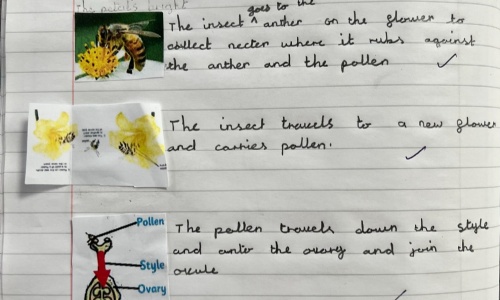 The petals bright
goes to the
The insect ^ anther on the glower to
collect necter where it rubs against
the anther and the pollen
The insect travels to a new glower
and carries pollen.
Pollen
Style
Ovary
The pollen travels down the style
and enter the ovary and join the
ovule